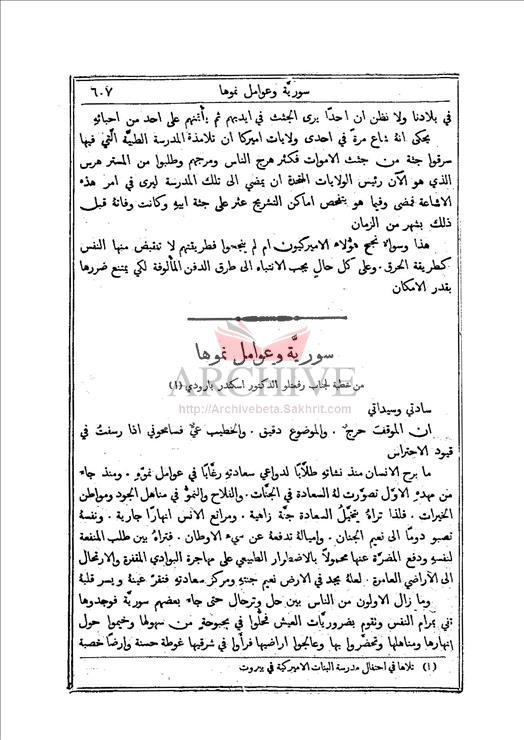 سوريَّة وعوامل نموها
٦٠٧
في بلادنا ولا نظن ان احدًا يرى الجثث في ايديهم ثم يأتمنهم على احد من احبائهِ
يحكى انهُ شاع مرةً في احدى ولايات اميركا ان تلامذة المدرسة الطبيَّة الَّتي فيها
سرقوا جثة من جثث الاموات فكثر هرج الناس ومرجهم وطلبوا من المستر هرسن
الذي هو الآن رئيس الولايات المتحدة ان يمضي الى تلك المدرسة ليرى في امر هذه
الاشاعة فمضى وفيما هو يتفحص اماكن التشريح عثر على جثة ابيهِ وكانت وفاتهُ قبل
ذلك بشهر من الزمان
هذا وسواء نجح هؤلاء الاميركيون ام لم ينجحوا فطريقتهم لا تنقبض منها النفس
كطريقة الحرق. وعلى كل حال يجب الانتباه الى طرق الدفن المألوفة لكي يمتنع ضررها
بقدر الامكان
سوريَّة وعوامل نموها
ARCHIVE
من خطبة لجناب رفعتلو الدكتور اسكندر بارودي (١)
http://Archivebeta.Sakhrit.com
سادتي وسيداتي
ان الموقف حرجٌ. والموضوع دقيق. والخطيب عيٌّ فسامحوني اذا رسفتُ في
قيود الاحتراس
ما برح الانسان منذ نشأتهِ طلَّابًا لدواعي سعادتهِ رغَّابًا في عوامل نموّهِ. ومنذ جاء
من مهدهِ الاوّل تصوَّرت لهُ السعادة في الجنَّات. والفلاح والنموُّ في مناهل الجود ومواطن
الخيرات. فلذا تراهُ يتخيَّل السعادة جنَّة زاهية. ومراتع الانس انهارًا جارية. ونفسهُ
تصبو دومًا الى نعيم الجنان. وامياله تدفعهُ عن سيء الاوطان. فتراهُ بين طلب المنفعة
لنفسهِ ودفع المضرَّة عنها محمولًا بالاضطرار الطبيعي على مهاجرة البوادي المقفرة والارتحال
الى الاراضي العامرة. لعلهُ يجد في الارض نعيم جنتهِ ومركز سعادتهِ فتقرَّ عينهُ ويسر قلبهُ
وما زال الاولون من الناس بين حل وترحال حتى جاء بعضهم سوريَّة فوجدوها
تفي بمرام النفس وتقوم بضروريَّات العيش فحلُّوا في بحبوحةٍ من سهولها وخيموا حول
انهارها ومناهلها وتحضَّروا بها وعالجوا اراضيها فرأوا في شرقيها غوطة حسنة وارضًا خصبة
(١) تلاها في احتفال مدرسة البنات الاميركية في بيروت